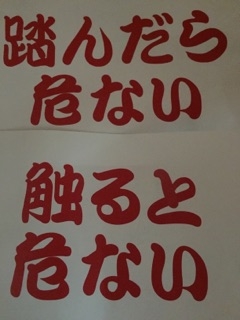 踏んだら
危ない
触ると
危ない